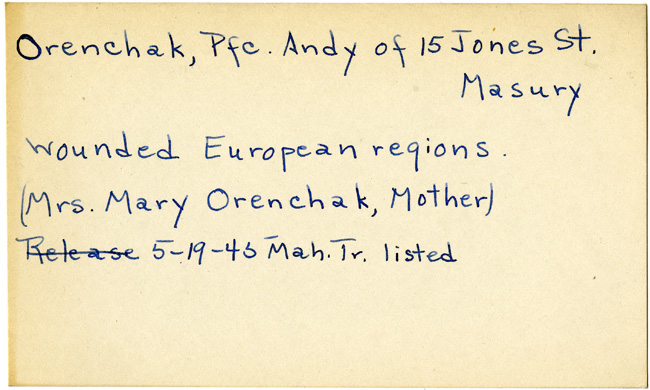 Orenchak, Pfc. Andy of 15 Jones St.
Masury
wounded European regions.
(Mrs. Mary Orenchak, Mother)
Release 5-19-45 Mah. Tr. listed